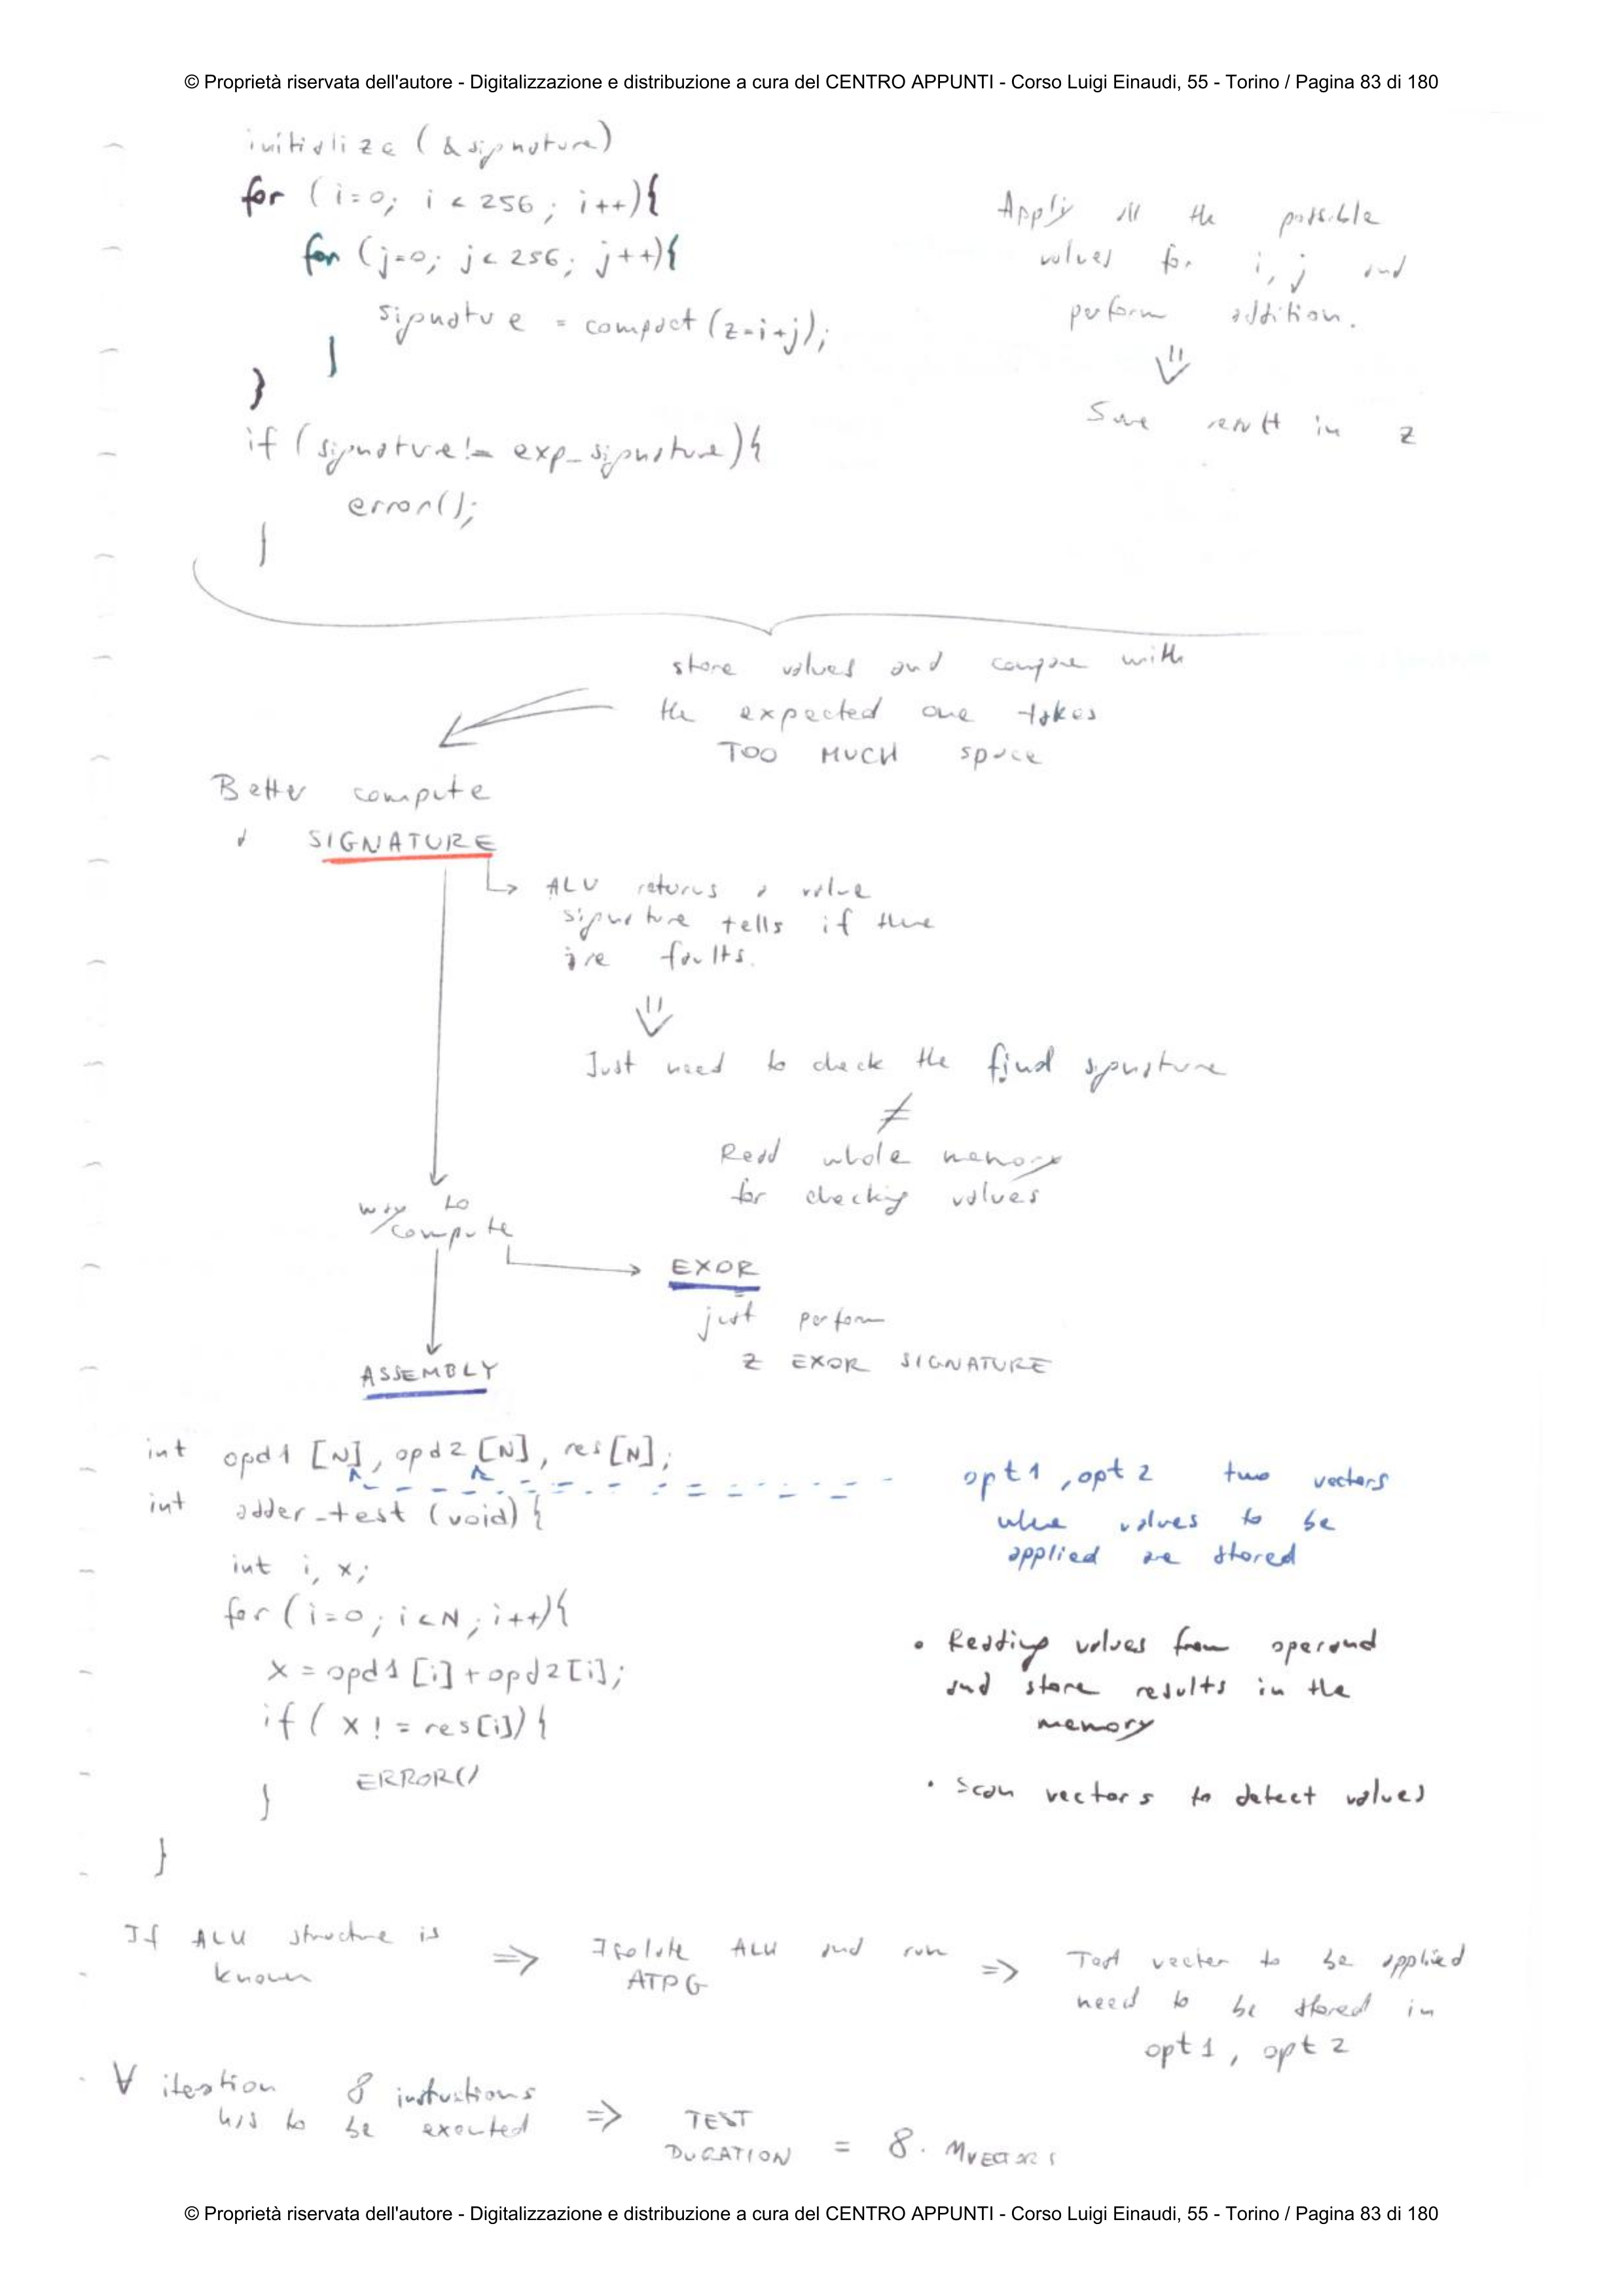 © Proprietà riservata dell'autore - Digitalizzazione e distribuzione a cura del CENTRO APPUNTI - Corso Luigi Einaudi, 55 - Torino / Pagina 83 di 180
initialize (&signature)
for (i=0; i<256; i++){
for (j=0; j<256; j++){
signature = compact (z=i+j);
}
}
if (signature != exp_signature){
error();
}
Apply all the possible
values for i, j and
perform addition.
⇓
Save result in z
store values and compare with
the expected one takes
TOO MUCH space
Better compute
a SIGNATURE
ALU returns a value
signature tells if there
are faults.
⇓
Just need to check the final signature
≠
Read whole memory
for checking values
way to
compute
EXOR
just perform
z EXOR SIGNATURE
ASSEMBLY
int opd1 [N], opd2 [N], res[N];
int adder_test (void){
int i, x;
for (i=0; i<N; i++){
x = opd1 [i] + opd2 [i];
if ( x != res[i]) {
ERROR()
}
}
opt1, opt2 two vectors
where values to be
applied are stored
• Reading values from operand
and store results in the
memory
• Scan vectors to detect values
If ALU structure is
known
⇒ Isolate ALU and run
ATPG
⇒ Test vector to be applied
need to be stored in
opt1, opt2
∀ iteration 8 instructions
has to be executed
⇒ TEST
DURATION = 8 · MVECTORS
© Proprietà riservata dell'autore - Digitalizzazione e distribuzione a cura del CENTRO APPUNTI - Corso Luigi Einaudi, 55 - Torino / Pagina 83 di 180